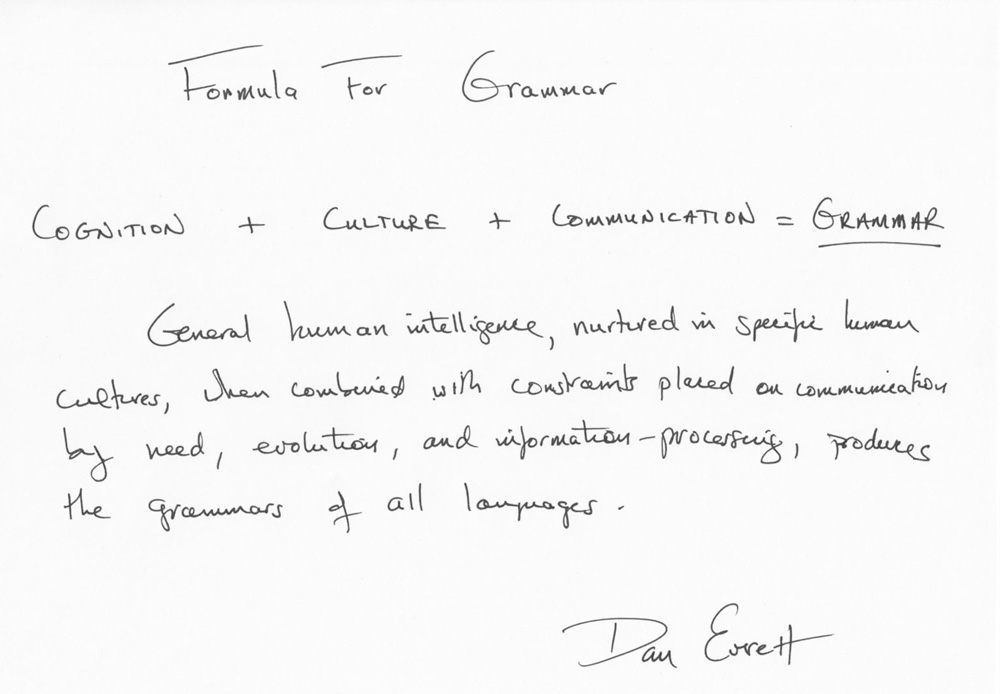 Formula For Grammar
COGNITION + CULTURE + COMMUNICATION = GRAMMAR
General human intelligence, nurtured in specific human
cultures, when combined with constraints placed on communication
by need, evolution, and information-processing, produces
the grammars of all languages.
Dan Everett